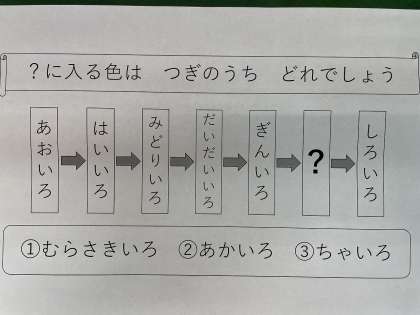 ？に入る色は　つぎのうち　どれでしょう
あおいろ
はいいろ
みどりいろ
だいだいいろ
ぎんいろ
？
しろいろ
①むらさきいろ　②あかいろ　③ちゃいろ